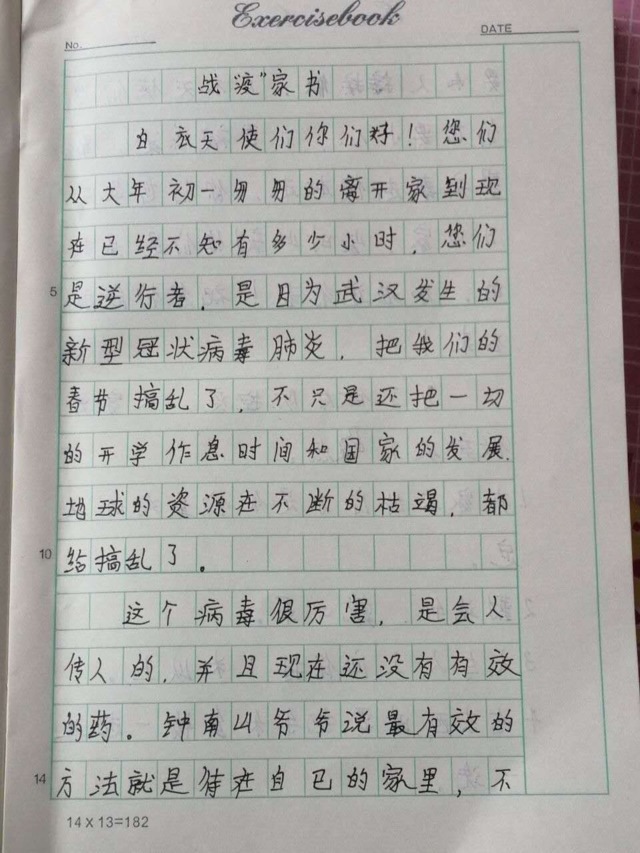 Exercisebook
No.
DATE
战疫”家书
白衣天使们你们好！您们
从大年初一匆匆的离开家到现
在已经不知有多少小时，您们
5 是逆行者，是因为武汉发生的
新型冠状病毒肺炎，把我们的
春节搞乱了，不只是还把一切
的开学作息时间和国家的发展.
地球的资源在不断的枯竭，都
10 给搞乱了。
这个病毒很厉害，是会人
传人的，并且现在还没有有效
的药。钟南山爷爷说最有效的
14 方法就是待在自已的家里，不
14×13=182